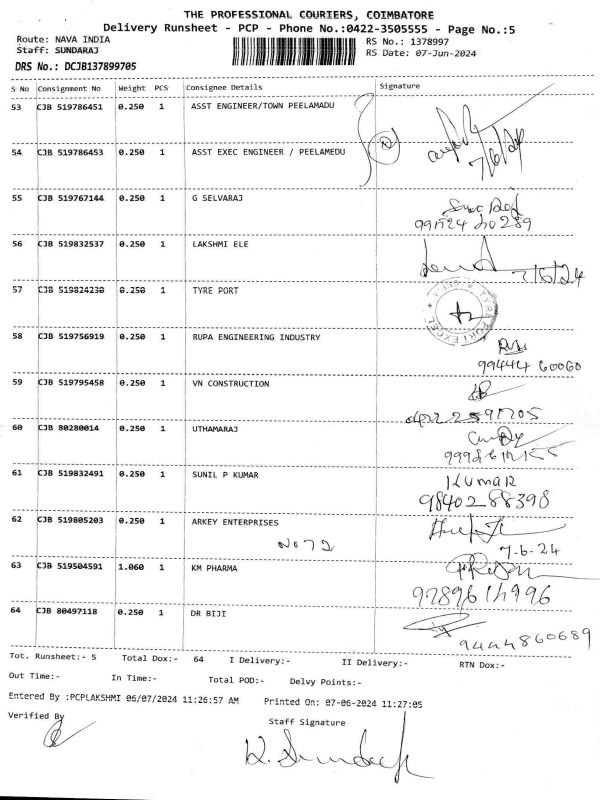 THE PROFESSIONAL COURIERS, COIMBATORE
Delivery Runsheet - PCP - Phone No.:0422-3505555 - Page No.:5
Route: NAVA INDIA
RS No.: 1378997
Staff: SUNDARAJ
RS Date: 07-Jun-2024
DRS No.: DCJB137899705
S No Consignment No Weight PCS Consignee Details Signature
53 CJB 519786451 0.250 1 ASST ENGINEER/TOWN PEELAMADU
7/6/24
54 CJB 519786453 0.250 1 ASST EXEC ENGINEER / PEELAMEDU
55 CJB 519767144 0.250 1 G SELVARAJ
56 CJB 519832537 0.250 1 LAKSHMI ELE
7/6/24
57 CJB 519824230 0.250 1 TYRE PORT
58 CJB 519756919 0.250 1 RUPA ENGINEERING INDUSTRY
99444 60060
59 CJB 519795458 0.250 1 VN CONSTRUCTION
60 CJB 80280014 0.250 1 UTHAMARAJ
61 CJB 519832491 0.250 1 SUNIL P KUMAR
KUMAR
98402 88398
62 CJB 519805203 0.250 1 ARKEY ENTERPRISES
7-6-24
63 CJB 519504591 1.060 1 KM PHARMA
64 CJB 80497118 0.250 1 DR BIJI
Tot. Runsheet:- 5 Total Dox:- 64 I Delivery:- II Delivery:- RTN Dox:-
Out Time:- In Time:- Total POD:- Delvy Points:-
Entered By :PCPLAKSHMI 06/07/2024 11:26:57 AM Printed On: 07-06-2024 11:27:05
Verified By Staff Signature